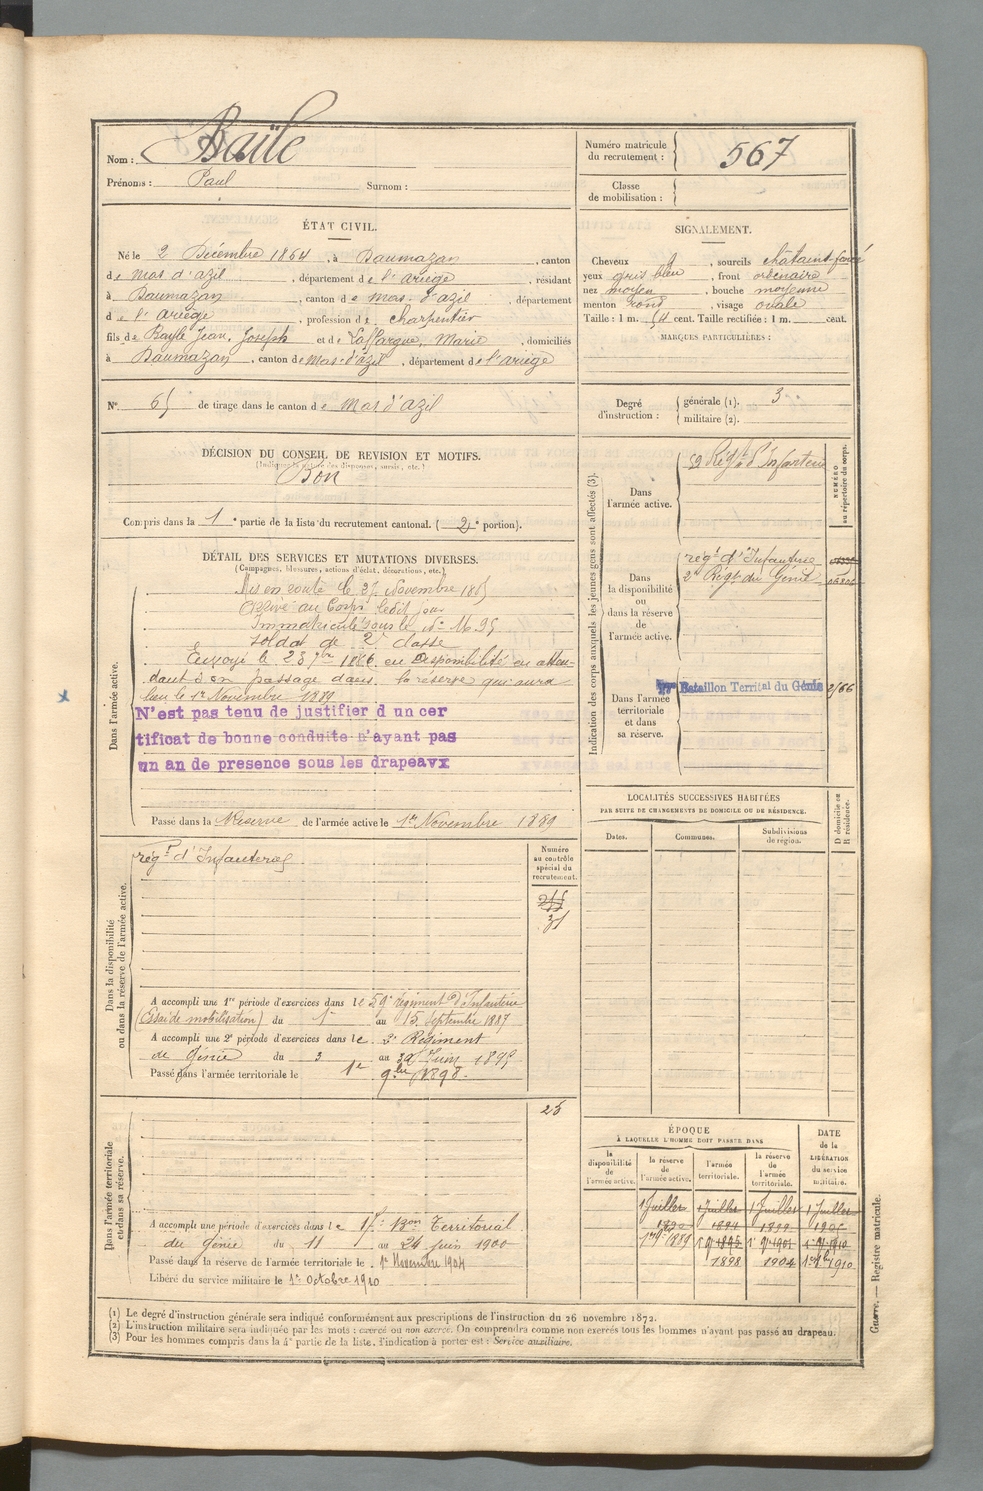 Nom : Baïle
Prénoms : Paul Surnom :
Numéro matricule du recrutement : 567
Classe de mobilisation :
ÉTAT CIVIL.
Né le 2 Décembre 1864, à Daumazan, canton
de Mas d'azil, département de l'ariège, résidant
à Daumazan, canton de Mas-d'azil, département
de l'ariège, profession de charpentier
fils de Bayle Jean, Joseph et de Laffargue, Marie, domiciliés
à Daumazan, canton de Mas-d'azil, département de l'ariège
SIGNALEMENT.
Cheveux et, sourcils châtaint-foncé
yeux gris bleu, front ordinaire
nez moyen, bouche moyenne
menton rond, visage ovale
Taille : 1 m. 54 cent. Taille rectifiée : 1 m. cent.
MARQUES PARTICULIÈRES :
N° 65 de tirage dans le canton de Mas d'azil
Degré d'instruction : générale (1). 3
militaire (2).
DÉCISION DU CONSEIL DE REVISION ET MOTIFS.
(Indiquer la nature des dispenses, sursis, etc.)
Bon
Compris dans la 1e partie de la liste du recrutement cantonal. (2e portion).
DÉTAIL DES SERVICES ET MUTATIONS DIVERSES.
(Campagnes, blessures, actions d'éclat, décorations, etc.)
Dans l'armée active.
Mis en route le 27 Novembre 1885
Arrivé au Corps ledit jour
Immatriculé sous le N° 1695
soldat de 2e classe
Envoyé le 23 7bre 1886 en Disponibilité en atten-
dant son passage dans la réserve qui aura
lieu le 1er Novembre 1889
N'est pas tenu de justifier d un cer
tificat de bonne conduite n'ayant pas
un an de presence sous les drapeaux
Passé dans la Réserve de l'armée active le 1er Novembre 1889
Indication des corps auxquels les jeunes gens sont affectés (3).
NUMÉRO au répertoire du corps.
Dans l'armée active.
59 Régt d'Infanterie
Dans la disponibilité ou dans la réserve de l'armée active.
régt d'Infanterie
2e Régt du Génie
Dans l'armée territoriale et dans sa réserve.
17me Bataillon Territal du Génie 2/66
LOCALITÉS SUCCESSIVES HABITÉES
PAR SUITE DE CHANGEMENTS DE DOMICILE OU DE RÉSIDENCE.
Dates. Communes. Subdivisions de région. D domicile ou R résidence.
Dans la disponibilité ou dans la réserve de l'armée active.
Numéro au contrôle spécial du recrutement.
régt d'Infanterie
31
A accompli une 1re période d'exercices dans le 59e régiment d'Infanterie
(Essai de mobilisation) du 1er au 15 septembre 1887
A accompli une 2e période d'exercices dans le 2e Régiment
de Génie du 3 au 30 Juin 1895
Passé dans l'armée territoriale le 1er 9bre 1898.
Dans l'armée territoriale et dans sa réserve.
25
A accompli une période d'exercices dans le 17e Baon Territorial
du Génie du 11 au 24 juin 1900
Passé dans la réserve de l'armée territoriale le 1er Novembre 1904
Libéré du service militaire le 1er Octobre 1910
ÉPOQUE
À LAQUELLE L'HOMME DOIT PASSER DANS
la disponibilité de l'armée active. la réserve de l'armée active. l'armée territoriale. la réserve de l'armée territoriale.
DATE de la LIBÉRATION du service militaire.
1 Juillet 1 Juillet 1 Juillet 1 Juillet
1890 1894 1899 1905
1er 9bre 1889 1 9bre 1895 1 9bre 1901 1 9bre 1910
1898 1904 1er 8bre 1910
(1) Le degré d'instruction générale sera indiqué conformément aux prescriptions de l'instruction du 26 novembre 1872.
(2) L'instruction militaire sera indiquée par les mots : exercé ou non exercé. On comprendra comme non exercés tous les hommes n'ayant pas passé au drapeau.
(3) Pour les hommes compris dans la 4e partie de la liste, l'indication à porter est : Service auxiliaire.
Guerre. — Registre matricule.